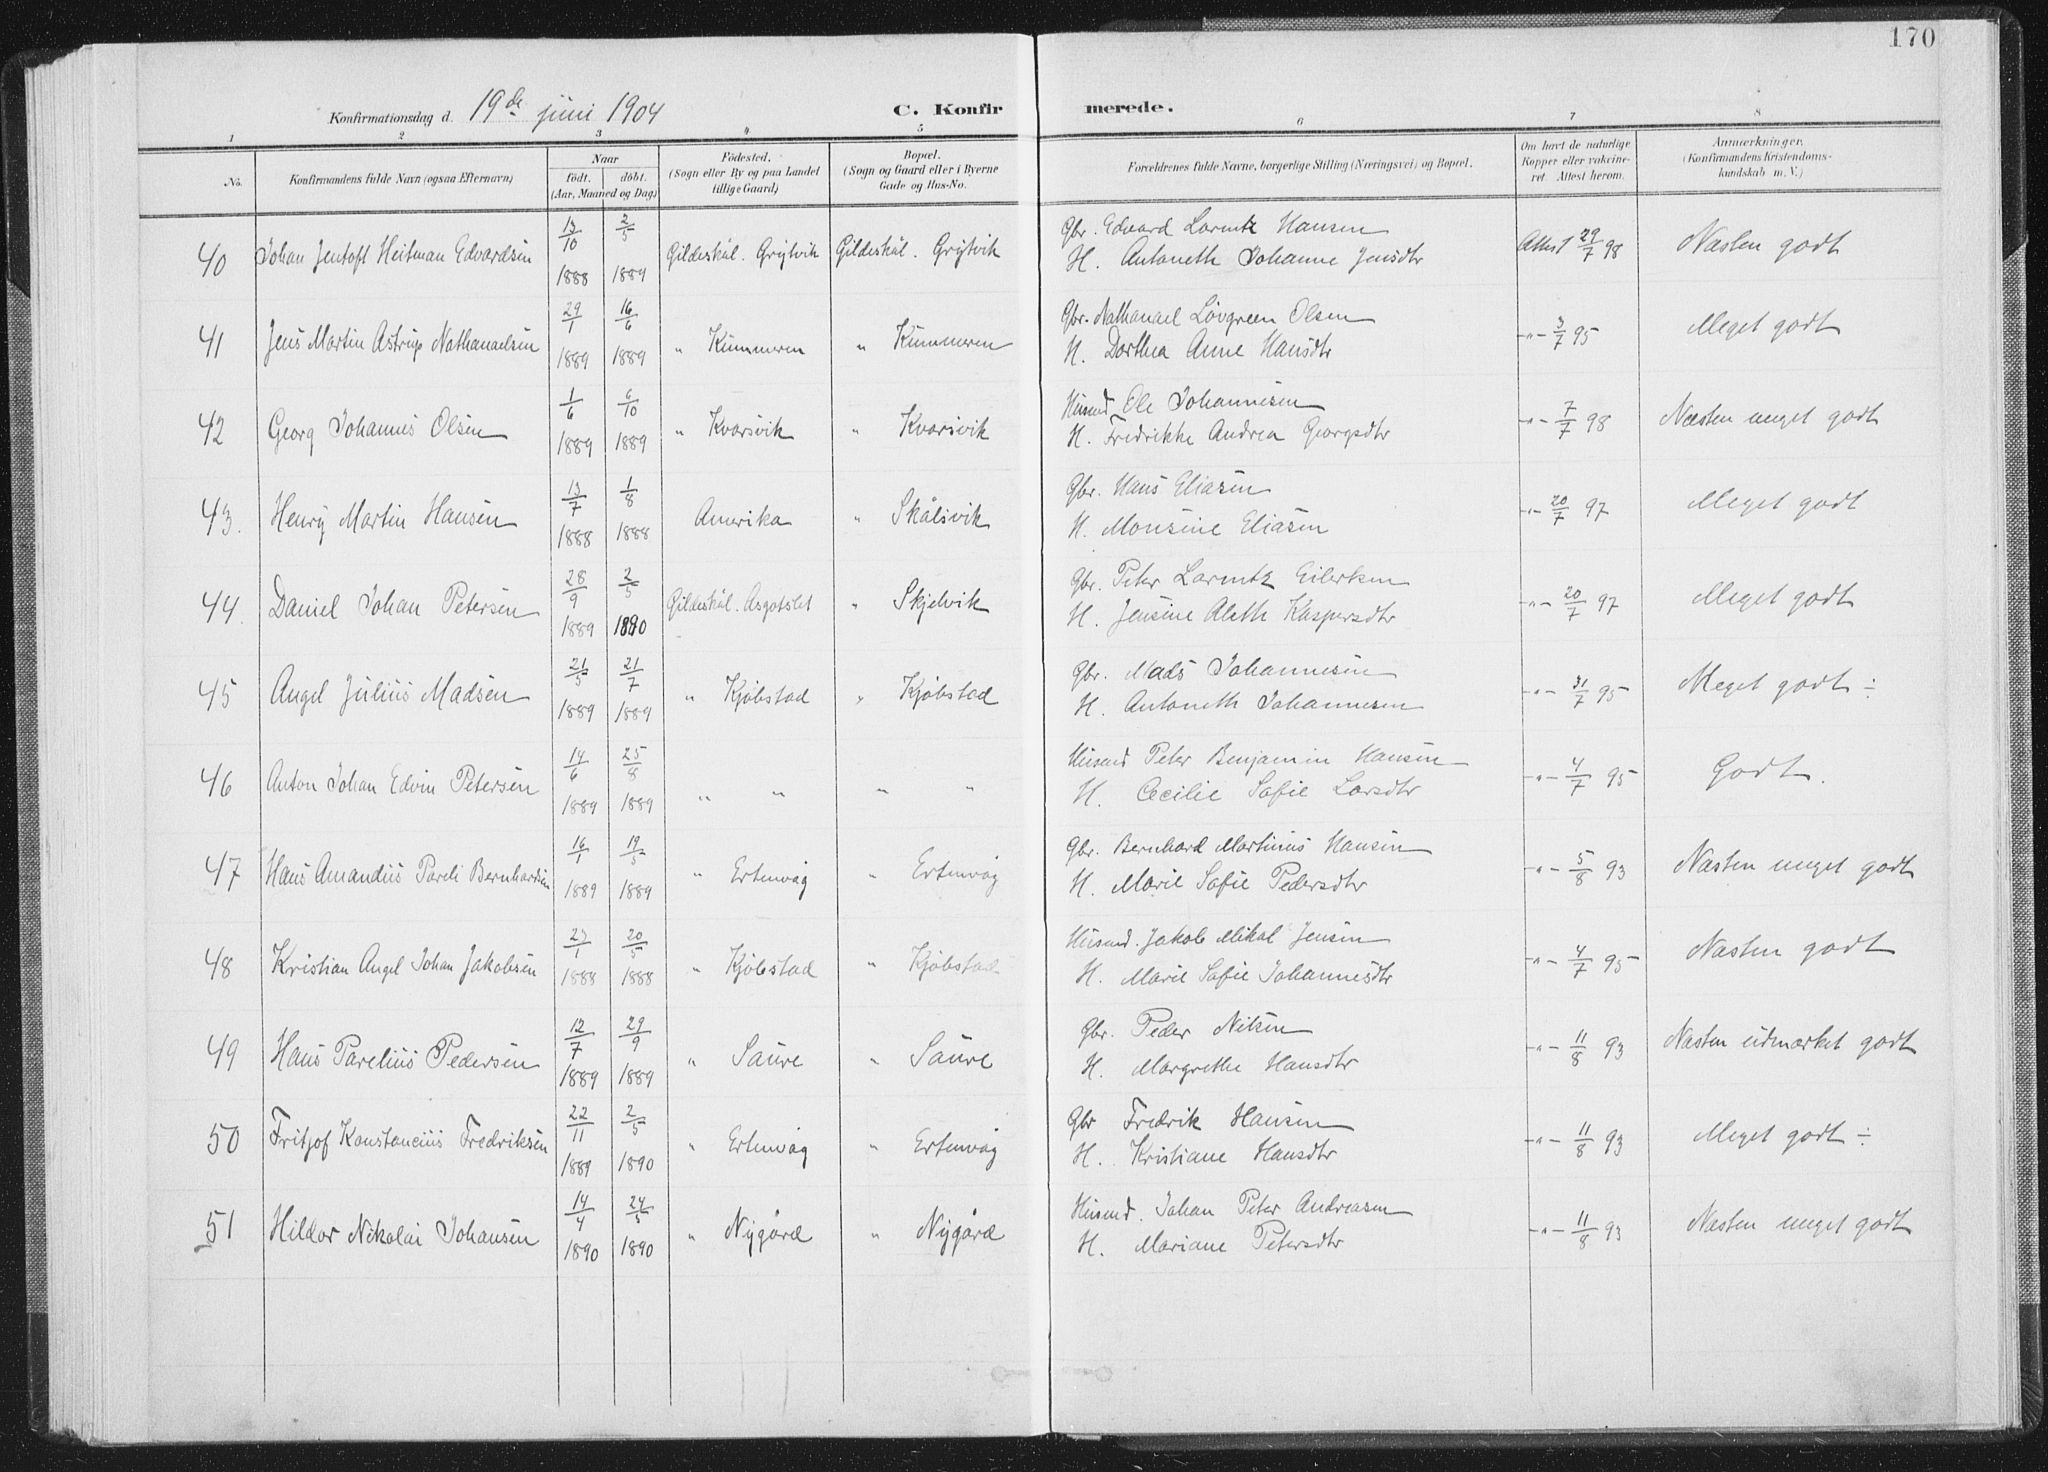 170
Konfirmationsdag d. 19de juni 1904 C. Konfirmerede.
1 2 3 4 5 6 7 8
No. Konfirmandens fulde Navn (ogsaa Efternavn) Naar födt. döbt. (Aar, Maaned og Dag) Födested. (Sogn eller By og paa Landet tillige Gaard) Bopæl. (Sogn og Gaard eller i Byerne Gade og Hus-No. Forældrenes fulde Navne, borgerlige Stilling (Næringsvei) og Bopæl. Om havt de naturlige Kopper eller vakcineret. Attest herom. Anmærkninger. (Konfirmandens Kristendomskundskab m. V.)
40 Johan Jentoft Heitman Edvardsen 13/10 1888 2/5 1889 Gildeskål. Grytvik Gildeskål. Grytvik Gbr. Edvard Lorentz Hansen
H. Antoneth Johanne Jensdtr Attest 29/7 98 Næsten godt
41 Jens Martin Astrup Nathanaelsen 29/1 1889 16/6 1889 " Kummeren " Kummeren Gbr. Nathanael Løvgreen Olsen
H. Dorthea Anne Hansdtr -"- 3/7 95 Meget godt
42 Georg Johannes Olsen 1/6 1889 6/10 1889 " Kvarsvik " Kvarsvik Husmd Ole Johannesen
H. Fredrikke Andrea Georgsdtr -"- 7/7 98 Næsten meget godt
43. Henry Martin Hansen 13/7 1888 1/8 1888 Amerika " Skålsvik Gbr. Hans Eliasen
H. Monsine Eliasen -"- 20/7 97 Meget godt
44. Daniel Johan Petersen 28/9 1889 2/5 1890 Gildeskål. Asgotslet " Skjelvik Gbr. Peter Lorentz Eilertsen
H. Jensine Aleth Kaspersdtr -"- 20/7 97 Meget godt
45 Angel Julius Madsen 21/5 1889 21/7 1889 " Kjøbstad " Kjøbstad Gbr. Mads Johannesen
H. Antoneth Johannesen -"- 31/7 95 Meget godt ÷
46 Anton Johan Edvin Petersen 14/6 1889 25/8 1889 " " " " Husmd Peter Benjamin Hansen
H. Cecilie Sofie Larsdtr -"- 4/7 95 Godt.
47 Hans Amandus Pareli Bernhardsen 16/1 1889 19/5 1889 " Ertenvåg " Ertenvåg Gbr. Bernhard Martinus Hansen
H. Marie Sofie Pedersdtr -"- 5/8 93 Næsten meget godt
48 Kristian Angel Johan Jakobsen 23/1 1888 20/5 1888 " Kjøbstad " Kjøbstad Husmd. Jakob Mikal Jensen
H. Marie Sofie Johannesdtr -"- 4/7 95 Næsten godt
49 Hans Parelius Pedersen 12/7 1889 29/9 1889 " Saure " Saure Gbr. Peder Nilsen
H. Margrethe Hansdtr -"- 11/8 93 Næsten udmærket godt
50 Fritjof Konstancius Fredriksen 22/11 1889 2/5 1890 " Ertenvåg " Ertenvåg Gbr Fredrik Hansen
H. Kristiane Hansdtr -"- 11/8 93 Meget godt ÷
51 Hildor Nikolai Johansen 14/4 1890 24/5 1890 " Nygård " Nygård Husmd. Johan Peter Andreasen
H. Mariane Petersdtr -"- 11/8 93 Næsten meget godt